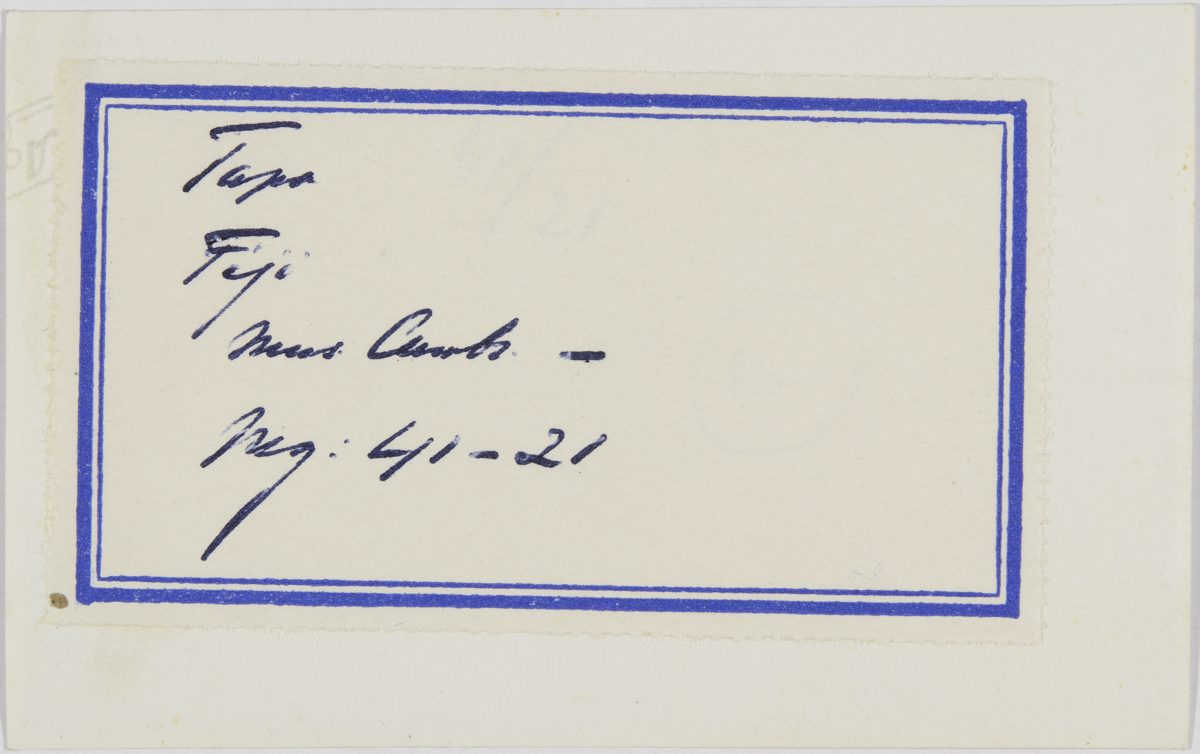 Tapa
Fiji
Mus. Camb. –
Neg: 41-21